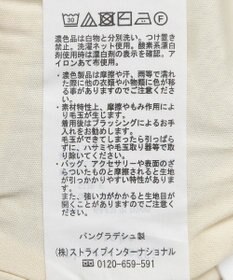 濃色品は白物と分別洗い。つけ置き
禁止。洗濯ネット使用。酸素系漂白
剤使用時は漂白剤の表示を確認。ア
イロンあて布使用。
・濃色製品は摩擦や汗、雨等で濡れ
た際に他の衣類や小物類に色が移
る事がありますのでご注意くださ
い。
・素材特性上、摩擦やもみ作用により
毛玉が生じます。
着用後はブラッシングによるお手
入れをお勧めします。
毛玉ができてしまったら引っぱら
ずに、ハサミや毛玉取り器等で取
り除いてください。
・バッグ、アクセサリーや表面のざ
らついたものと摩擦されると生地
が引っかかりやすい特性がありま
す。
また、強い力がかかると生地が損
傷しますのでご注意ください。
バングラデシュ製
(株)ストライプインターナショナル
☎ 0120-659-591